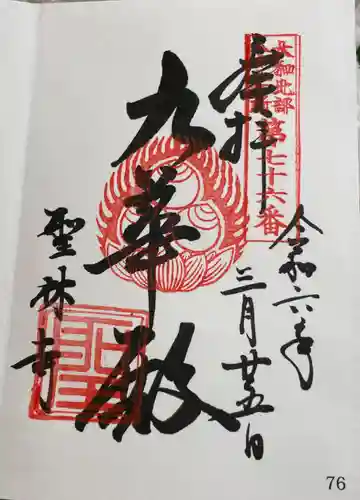 奉拝
大和北部
第七十六番
令和六年
三月廿五日
九華殿
聖林寺
76